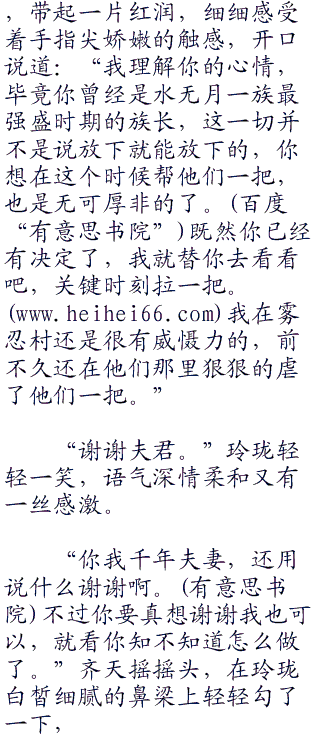 ，带起一片红润，细细感受
着手指尖娇嫩的触感，开口
说道：“我理解你的心情，
毕竟你曾经是水无月一族最
强盛时期的族长，这一切并
不是说放下就能放下的，你
想在这个时候帮他们一把，
也是无可厚非的了。(百度
“有意思书院”)既然你已经
有决定了，我就替你去看看
吧，关键时刻拉一把。
(www.heihei66.com)我在雾
忍村还是很有威慑力的，前
不久还在他们那里狠狠的虐
了他们一把。”
“谢谢夫君。”玲珑轻
轻一笑，语气深情柔和又有
一丝感激。
“你我千年夫妻，还用
说什么谢谢啊。(有意思书
院)不过你要真想谢谢我也可
以，就看你知不知道怎么做
了。”齐天摇摇头，在玲珑
白皙细腻的鼻梁上轻轻勾了
一下，